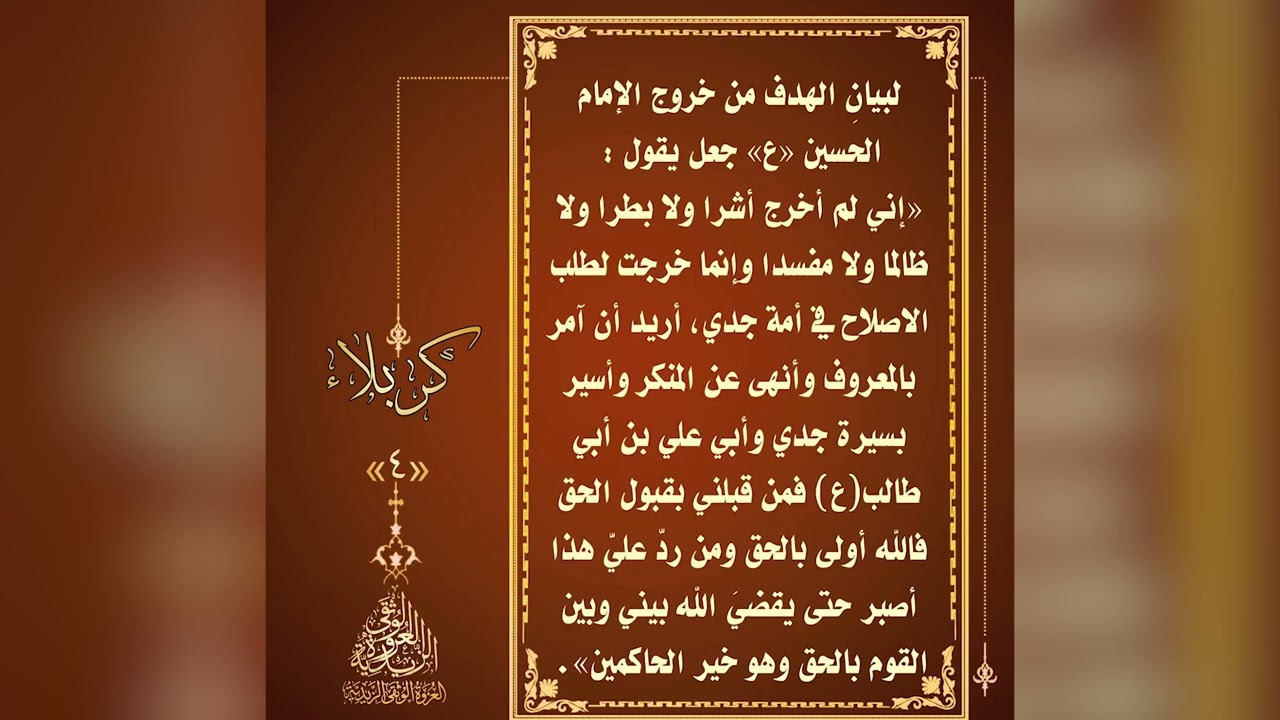 لبيانِ الهدف من خروج الإمام
الحسين «ع» جعل يقول :
«إني لم أخرج أشرا ولا بطرا ولا
ظالما ولا مفسدا وإنما خرجت لطلب
الاصلاح في أمة جدي، أريد أن آمر
بالمعروف وأنهى عن المنكر وأسير
بسيرة جدي وأبي علي بن أبي
طالب(ع) فمن قبلني بقبول الحق
فالله أولى بالحق ومن ردّ عليّ هذا
أصبر حتى يقضيَ الله بيني وبين
القوم بالحق وهو خير الحاكمين».
كربلاء
«٤»
العروة الوثقى الزيدية
العروة الوثقى الزيدية